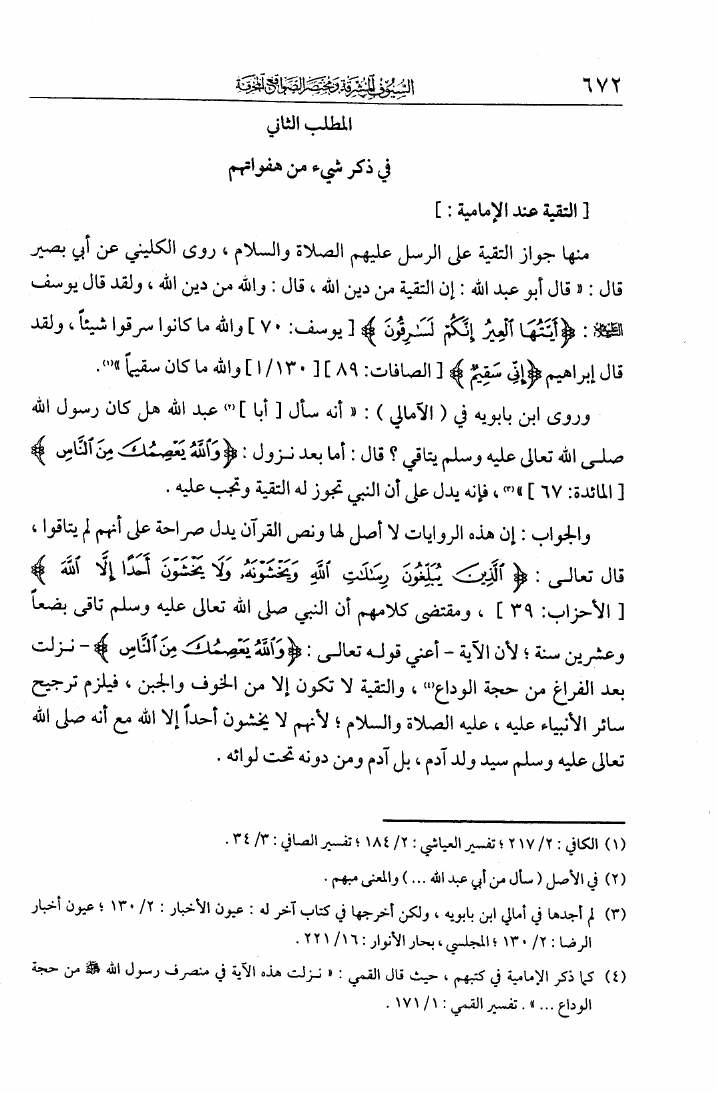 ٦٧٢ السيوف المشرقة ومختصر الصواقع المحرقة
المطلب الثاني
في ذكر شيء من هفواتهم
[ التقية عند الإمامية : ]
منها جواز التقية على الرسل عليهم الصلاة والسلام ، روى الكليني عن أبي بصير
قال : « قال أبو عبد الله : إن التقية من دين الله ، قال : والله من دين الله ، ولقد قال يوسف
العَلِيْهلا : ﴿ أَيَّتُهَا ٱلْعِيرُ إِنَّكُمْ لَسَٰرِقُونَ ﴾ [ يوسف: ٧٠ ] والله ما كانوا سرقوا شيئاً ، ولقد
قال إبراهيم ﴿ إِنِّي سَقِيمٌ ﴾ [ الصافات: ٨٩ ] [ ١/١٣٠ ] والله ما كان سقيماً »(١).
وروى ابن بابويه في ( الأمالي ) : « أنه سأل [ أبا ](٢) عبد الله هل كان رسول الله
صلى الله تعالى عليه وسلم يتاقي ؟ قال : أما بعد نزول : ﴿ وَٱللَّهُ يَعْصِمُكَ مِنَ ٱلنَّاسِ ﴾
[ المائدة: ٦٧ ] »(٣) ، فإنه يدل على أن النبي تجوز له التقية وتجب عليه .
والجواب : إن هذه الروايات لا أصل لها ونص القرآن يدل صراحة على أنهم لم يتاقوا ،
قال تعالى : ﴿ ٱلَّذِينَ يُبَلِّغُونَ رِسَٰلَٰتِ ٱللَّهِ وَيَخْشَوْنَهُۥ وَلَا يَخْشَوْنَ أَحَدًا إِلَّا ٱللَّهَ ﴾
[ الأحزاب: ٣٩ ] ، ومقتضى كلامهم أن النبي صلى الله تعالى عليه وسلم تاقى بضعاً
وعشرين سنة ؛ لأن الآية - أعني قوله تعالى : ﴿ وَٱللَّهُ يَعْصِمُكَ مِنَ ٱلنَّاسِ ﴾ - نزلت
بعد الفراغ من حجة الوداع(٤) ، والتقية لا تكون إلا من الخوف والجبن ، فيلزم ترجيح
سائر الأنبياء عليه ، عليه الصلاة والسلام ؛ لأنهم لا يخشون أحداً إلا الله مع أنه صلى الله
تعالى عليه وسلم سيد ولد آدم ، بل آدم ومن دونه تحت لوائه .
(١) الكافي : ٢١٧/٢ ؛ تفسير العياشي : ١٨٤/٢ ؛ تفسير الصافي : ٣٤/٣ .
(٢) في الأصل ( سأل من أبي عبد الله ... ) والمعنى مبهم .
(٣) لم أجدها في أمالي ابن بابويه ، ولكن أخرجها في كتاب آخر له : عيون الأخبار : ١٣٠/٢ ؛ عيون أخبار
الرضا : ١٣٠/٢ ؛ المجلسي ، بحار الأنوار : ٢٢١/١٦ .
(٤) كما ذكر الإمامية في كتبهم ، حيث قال القمي : « نزلت هذه الآية في منصرف رسول الله ﷺ من حجة
الوداع ... » . تفسير القمي : ١٧١/١ .